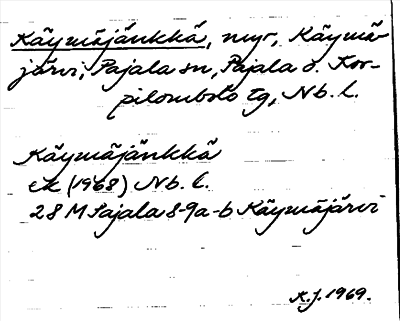 Käymäjänkkä, myr, Käymä-
järvi, Pajala sn, Pajala o. Kor-
pilombolo tg, Nb. l.
Käymäjänkkä
ek (1968) Nb. l.
28 M Pajala 8-9a-b Käymäjärvi
K.J. 1969.